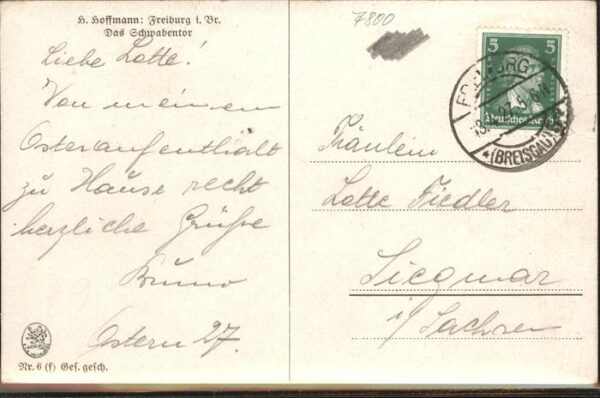 H. Hoffmann: Freiburg i. Br.
Das Schwabentor
7800
Liebe Lotte!
Von meinem
Osteraufenthalt
zu Hause recht
herzliche Grüße
Bruno
Ostern 27.
Nr. 6 (f) Ges. gesch.
5 5
Deutsches Reich
FREIBURG
(BREISGAU)
Fräulein
Lotte Fiedler
Siegmar
i/Sachsen